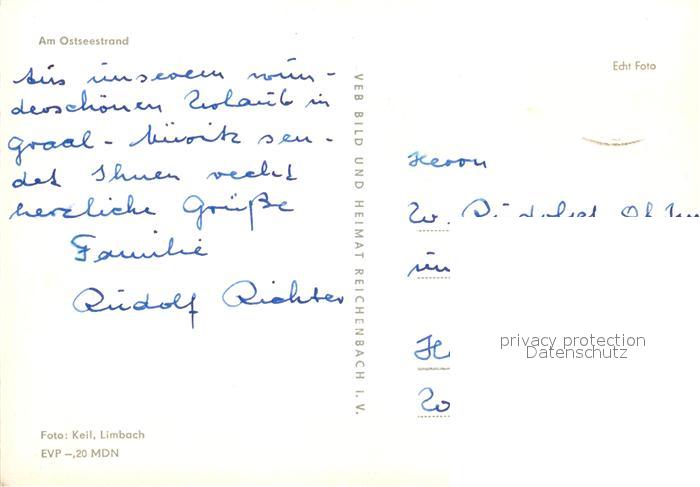 Am Ostseestrand
Aus unserem wun-
derschönen Urlaub in
Graal-Müritz sen-
det Ihnen recht
herzliche Grüße
Familie
Rudolf Richter
Foto: Keil, Limbach
EVP –,20 MDN
VEB BILD UND HEIMAT REICHENBACH i. V.
Echt Foto
Herrn
un
privacy protection
Datenschutz